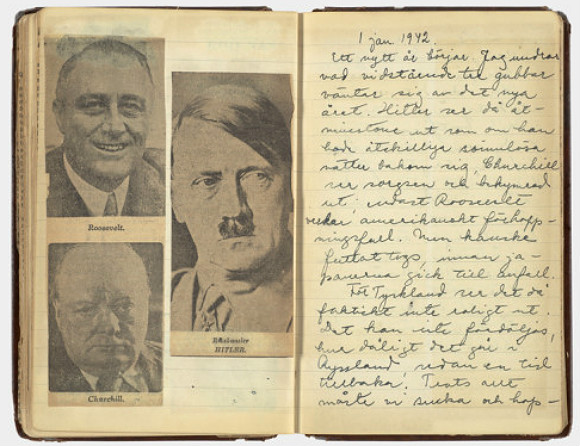 Roosevelt.
Churchill.
Rikskansler
HITLER.
1 jan 1942.
Ett nytt år börjar. Jag undrar
vad vidstående tre gubbar
väntar sig av det nya
året. Hitler ser då åt-
minstone ut som om han
hade åtskilliga sömnlösa
nätter bakom sig, Churchill
ser sorgsen och bekymrad
ut; endast Roosevelt
verkar amerikanskt förhopp-
ningsfull. Men kanske
fottot togs, innan ja-
panerna gick till anfall.
För Tyskland ser det då
faktiskt inte roligt ut.
Det kan inte fördöljas,
hur dåligt det går i
Ryssland, sedan en tid
tillbaka. Trots allt
måste vi sucka och hop-